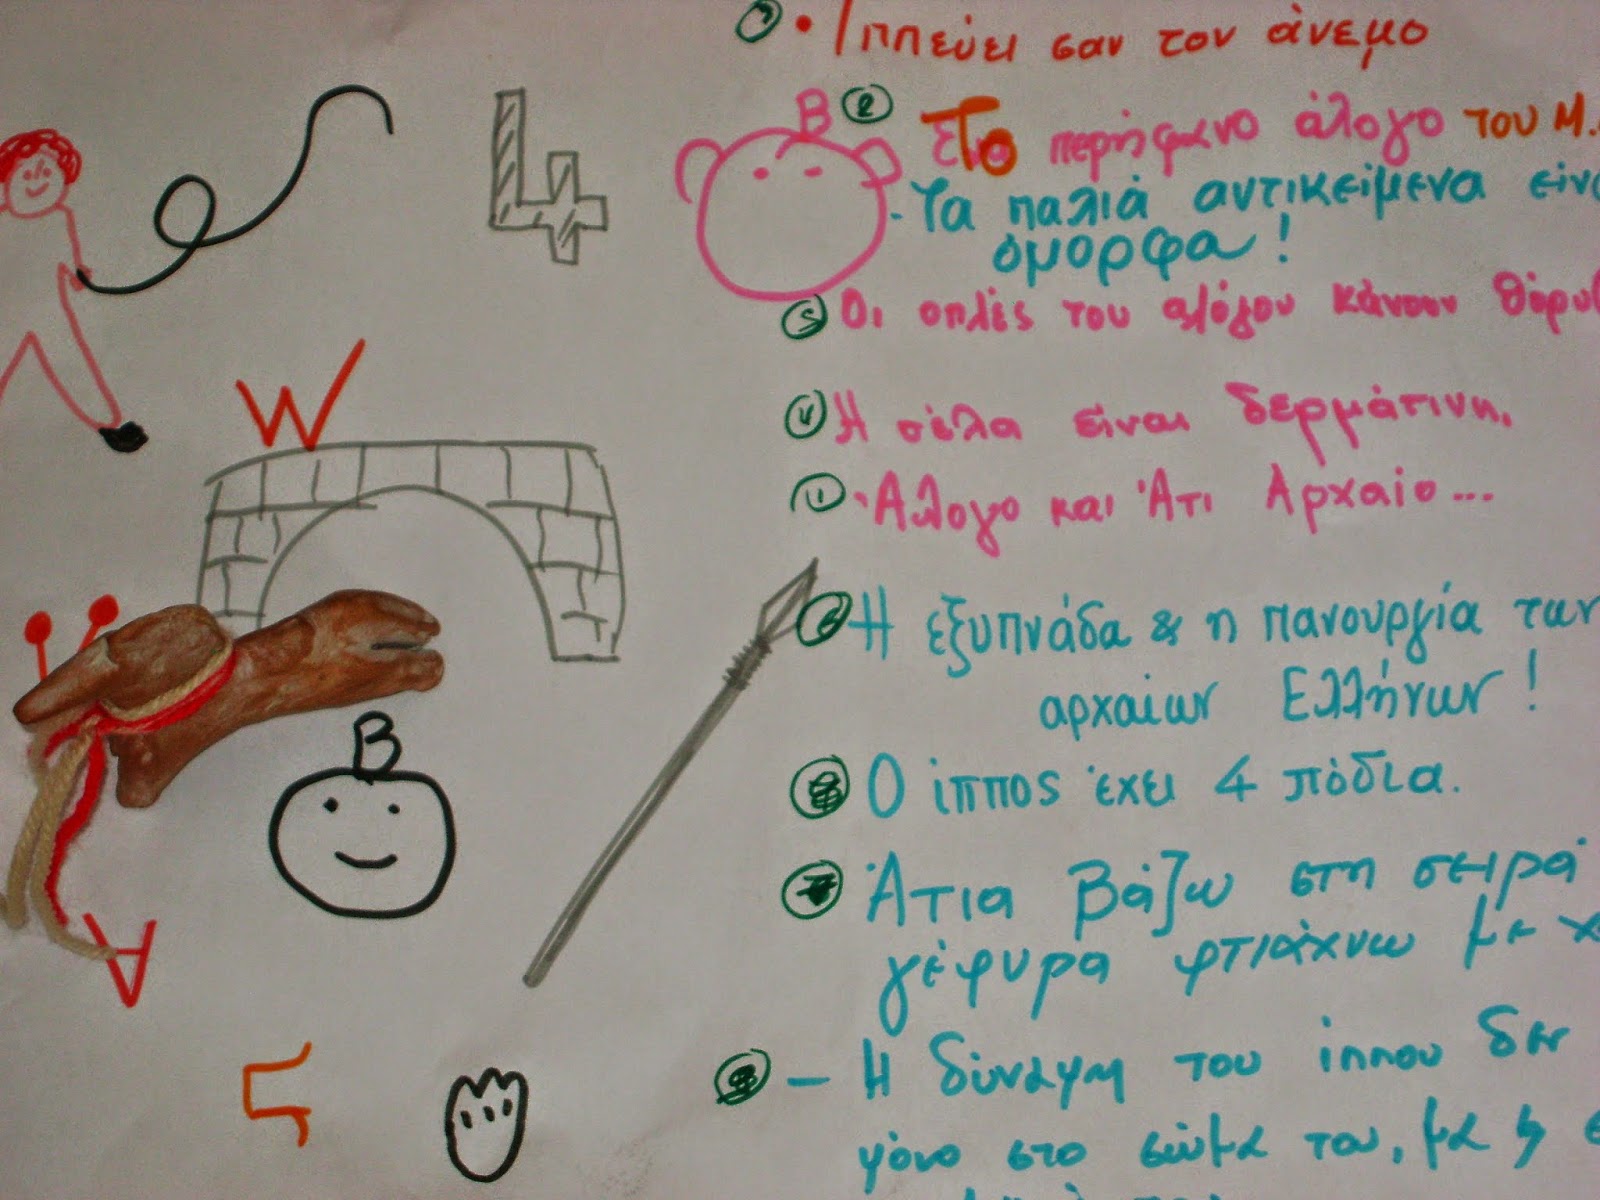 7 • Ιππεύει σαν τον άνεμο
4
B
2 Το περήφανο άλογο του Μ.
- Τα παλιά αντικείμενα είνα
όμορφα!
5 Οι οπλές του αλόγου κάνουν θόρυβ
W
4 Η σέλα είναι δερμάτινη.
1 • Άλογο και Άτι Αρχαίο...
6 Η εξυπνάδα & η πανουργία των
αρχαίων Ελλήνων!
B
Ο ίππος έχει 4 πόδια.
Άτια βάζω στη σειρά
γέφυρα φτιάχνω με χ
A
3 – Η δύναμη του ίππου δεν
μόνο στο σώμα του, μα η